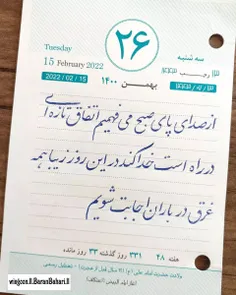 Tuesday
15 February 2022
2022 / 02 / 15
۲۶
بهمن ۱۴۰۰
سه شنبه
۱۳ رجب ۱۴۴۳
از صدای پای صبح می فهمیم اتفاق تازه ای
در راه است خدا کند در این روز زیبا همه
غرق در باران اجابت شویم
هفته ۴۸ ۳۳۱ روز گذشته ۳۳ روز مانده
ولادت حضرت امام علی (ع)